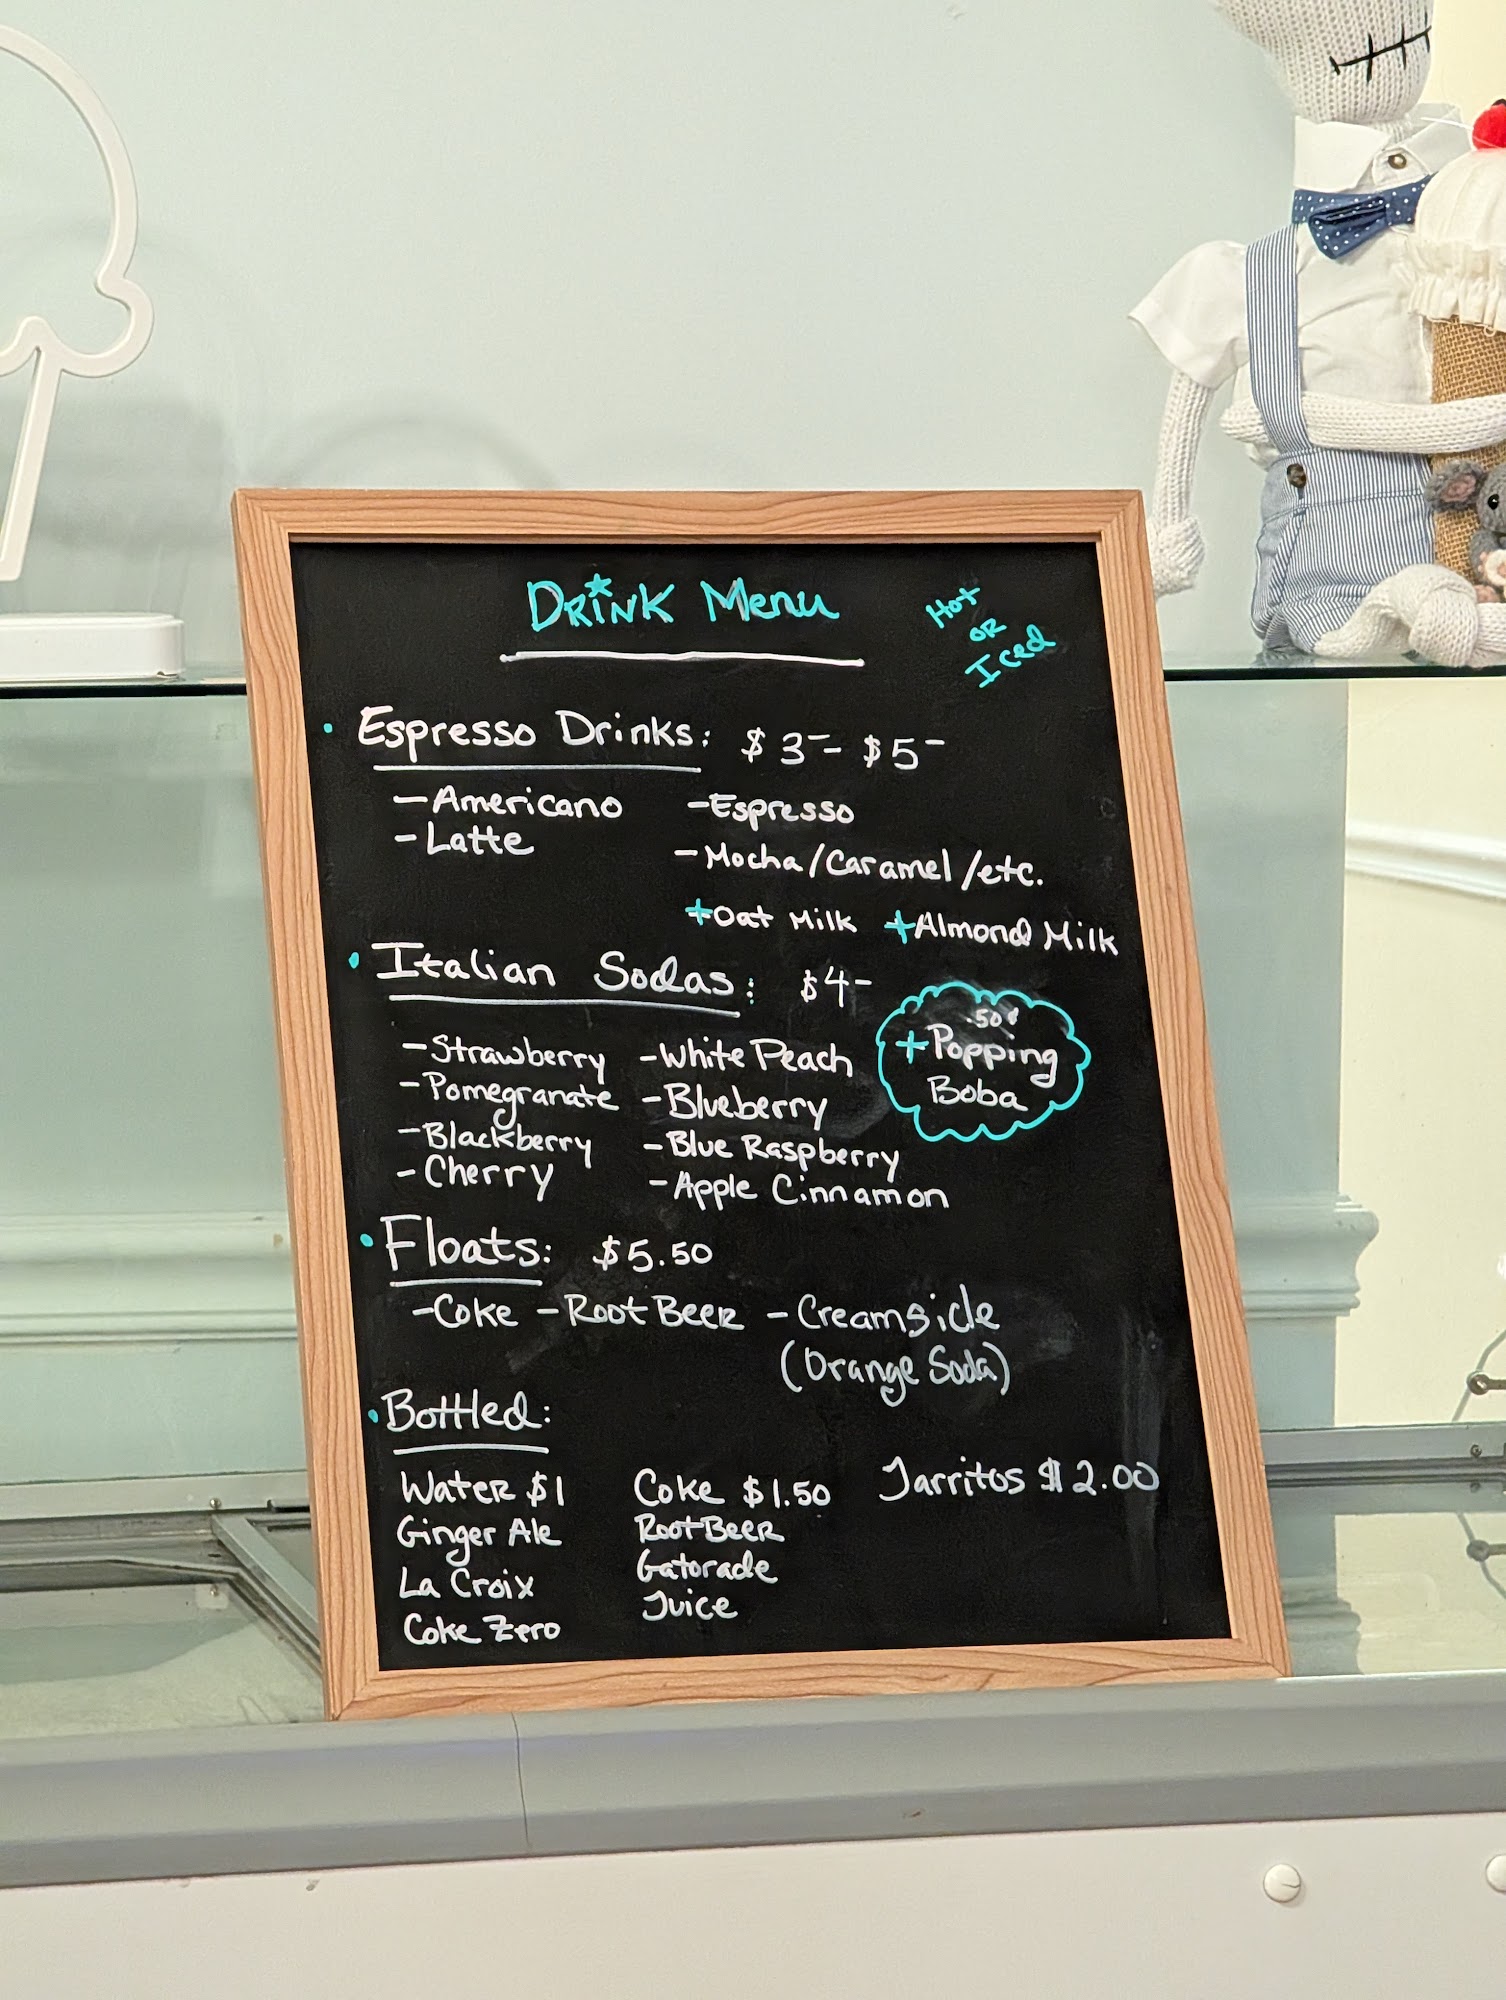 Drink Menu
Hot
or
Iced
• Espresso Drinks: $3- - $5-
- Americano - Espresso
- Latte
- Mocha/Caramel/etc.
+Oat Milk +Almond Milk
• Italian Sodas: $4-
.50¢
+Popping
Boba
- Strawberry - White Peach
- Pomegranate - Blueberry
- Blackberry - Blue Raspberry
- Cherry - Apple Cinnamon
• Floats: $5.50
- Coke - Root Beer - Creamsicle
(Orange Soda)
• Bottled:
Water $1 Coke $1.50 Jarritos $2.00
Ginger Ale Root Beer
La Croix Gatorade
Coke Zero Juice